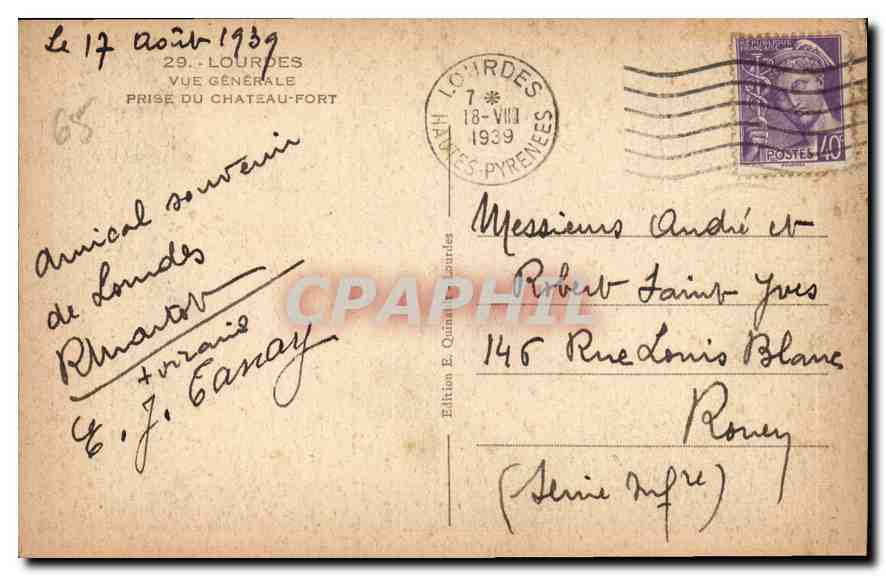 Le 17 Août 1939
29. - LOURDES
VUE GÉNÉRALE
PRISE DU CHATEAU-FORT
65
amical souvenir
de Lourdes
E. J.
LOURDES
7 *
18-VIII
1939
HAUTES-PYRENEES
POSTES 40
Edition E. Lourdes
CPAPHIL
Messieurs André et
Robert Saint Yves
146 Rue Louis Blanc
Rouen
(Seine Infre)